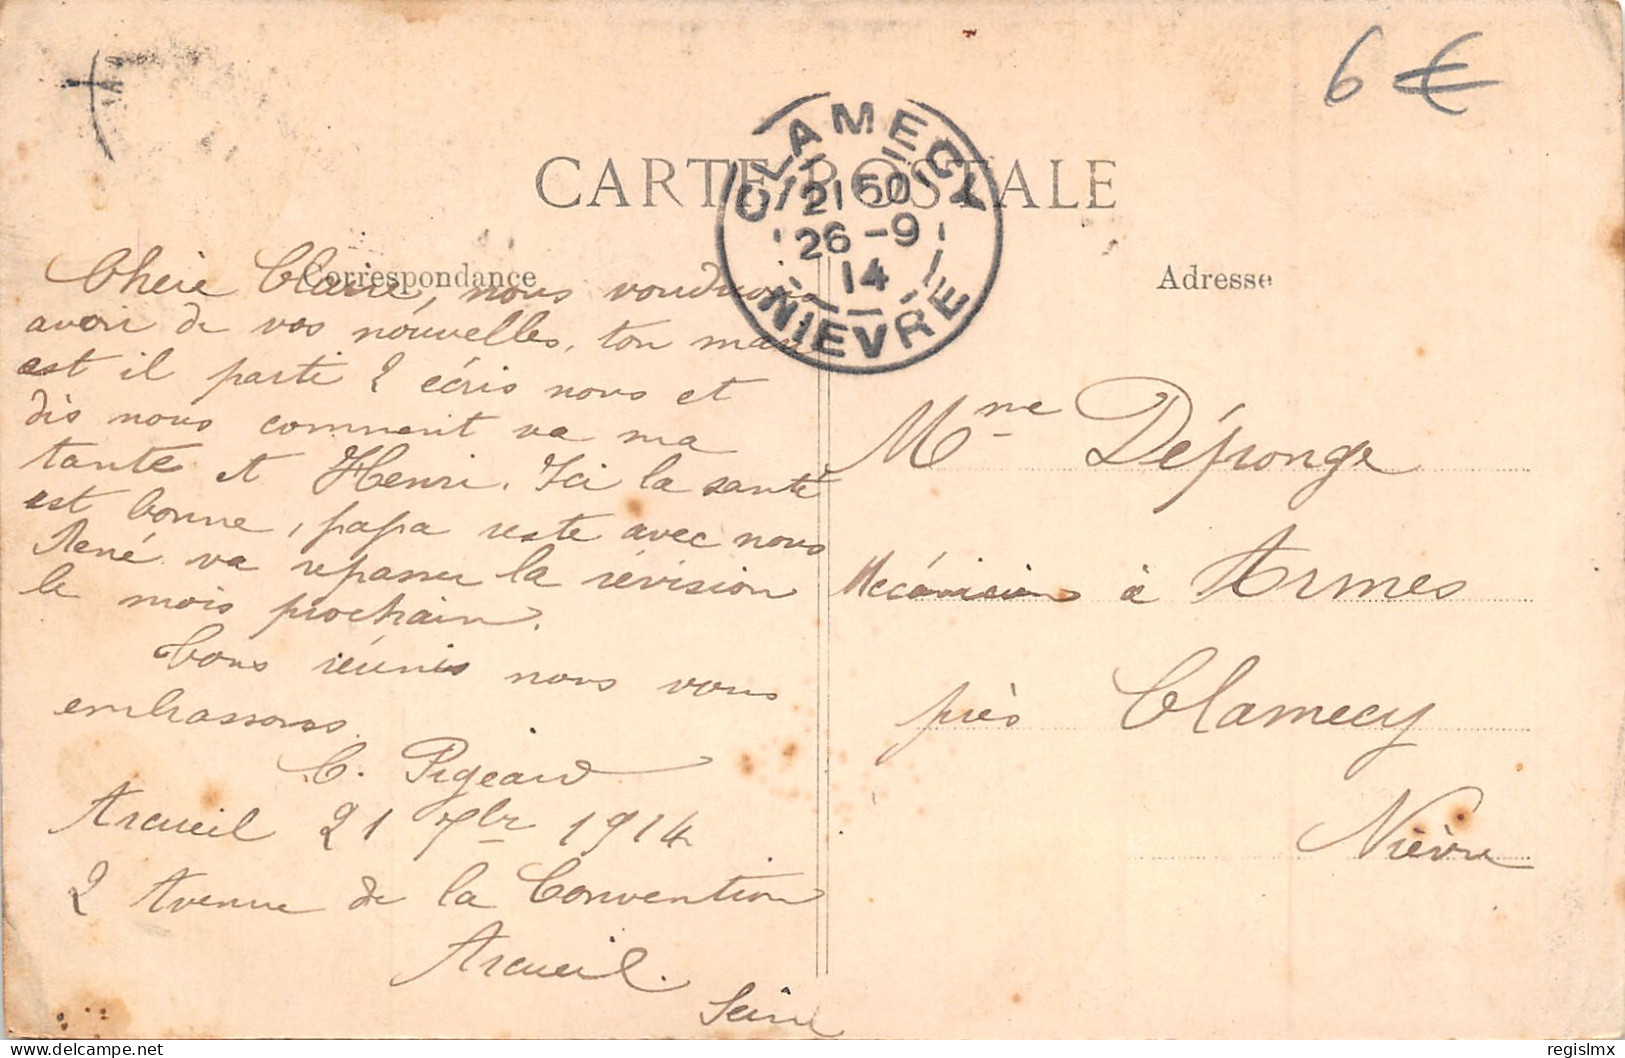 6 €
CARTE POSTALE
CLAMECY
21 50
26 - 9
14
NIEVRE
Correspondance
Adresse
Chère Claire, nous voudrions
avoir de vos nouvelles, ton mari
est il parti ? écris nous et
dis nous comment va ma
tante et Henri. Ici la santé
est bonne, papa reste avec nous
René va repasser la révision
le mois prochain.
Tous réunis nous vous
embrassons.
C. Pigeard
Arcueil 21 7bre 1914
2 Avenue de la Convention
Arcueil.
Seine
Mme Défronge
Mécanicien à Armes
près Clamecy
Nièvre
regislmx
delcampe.net